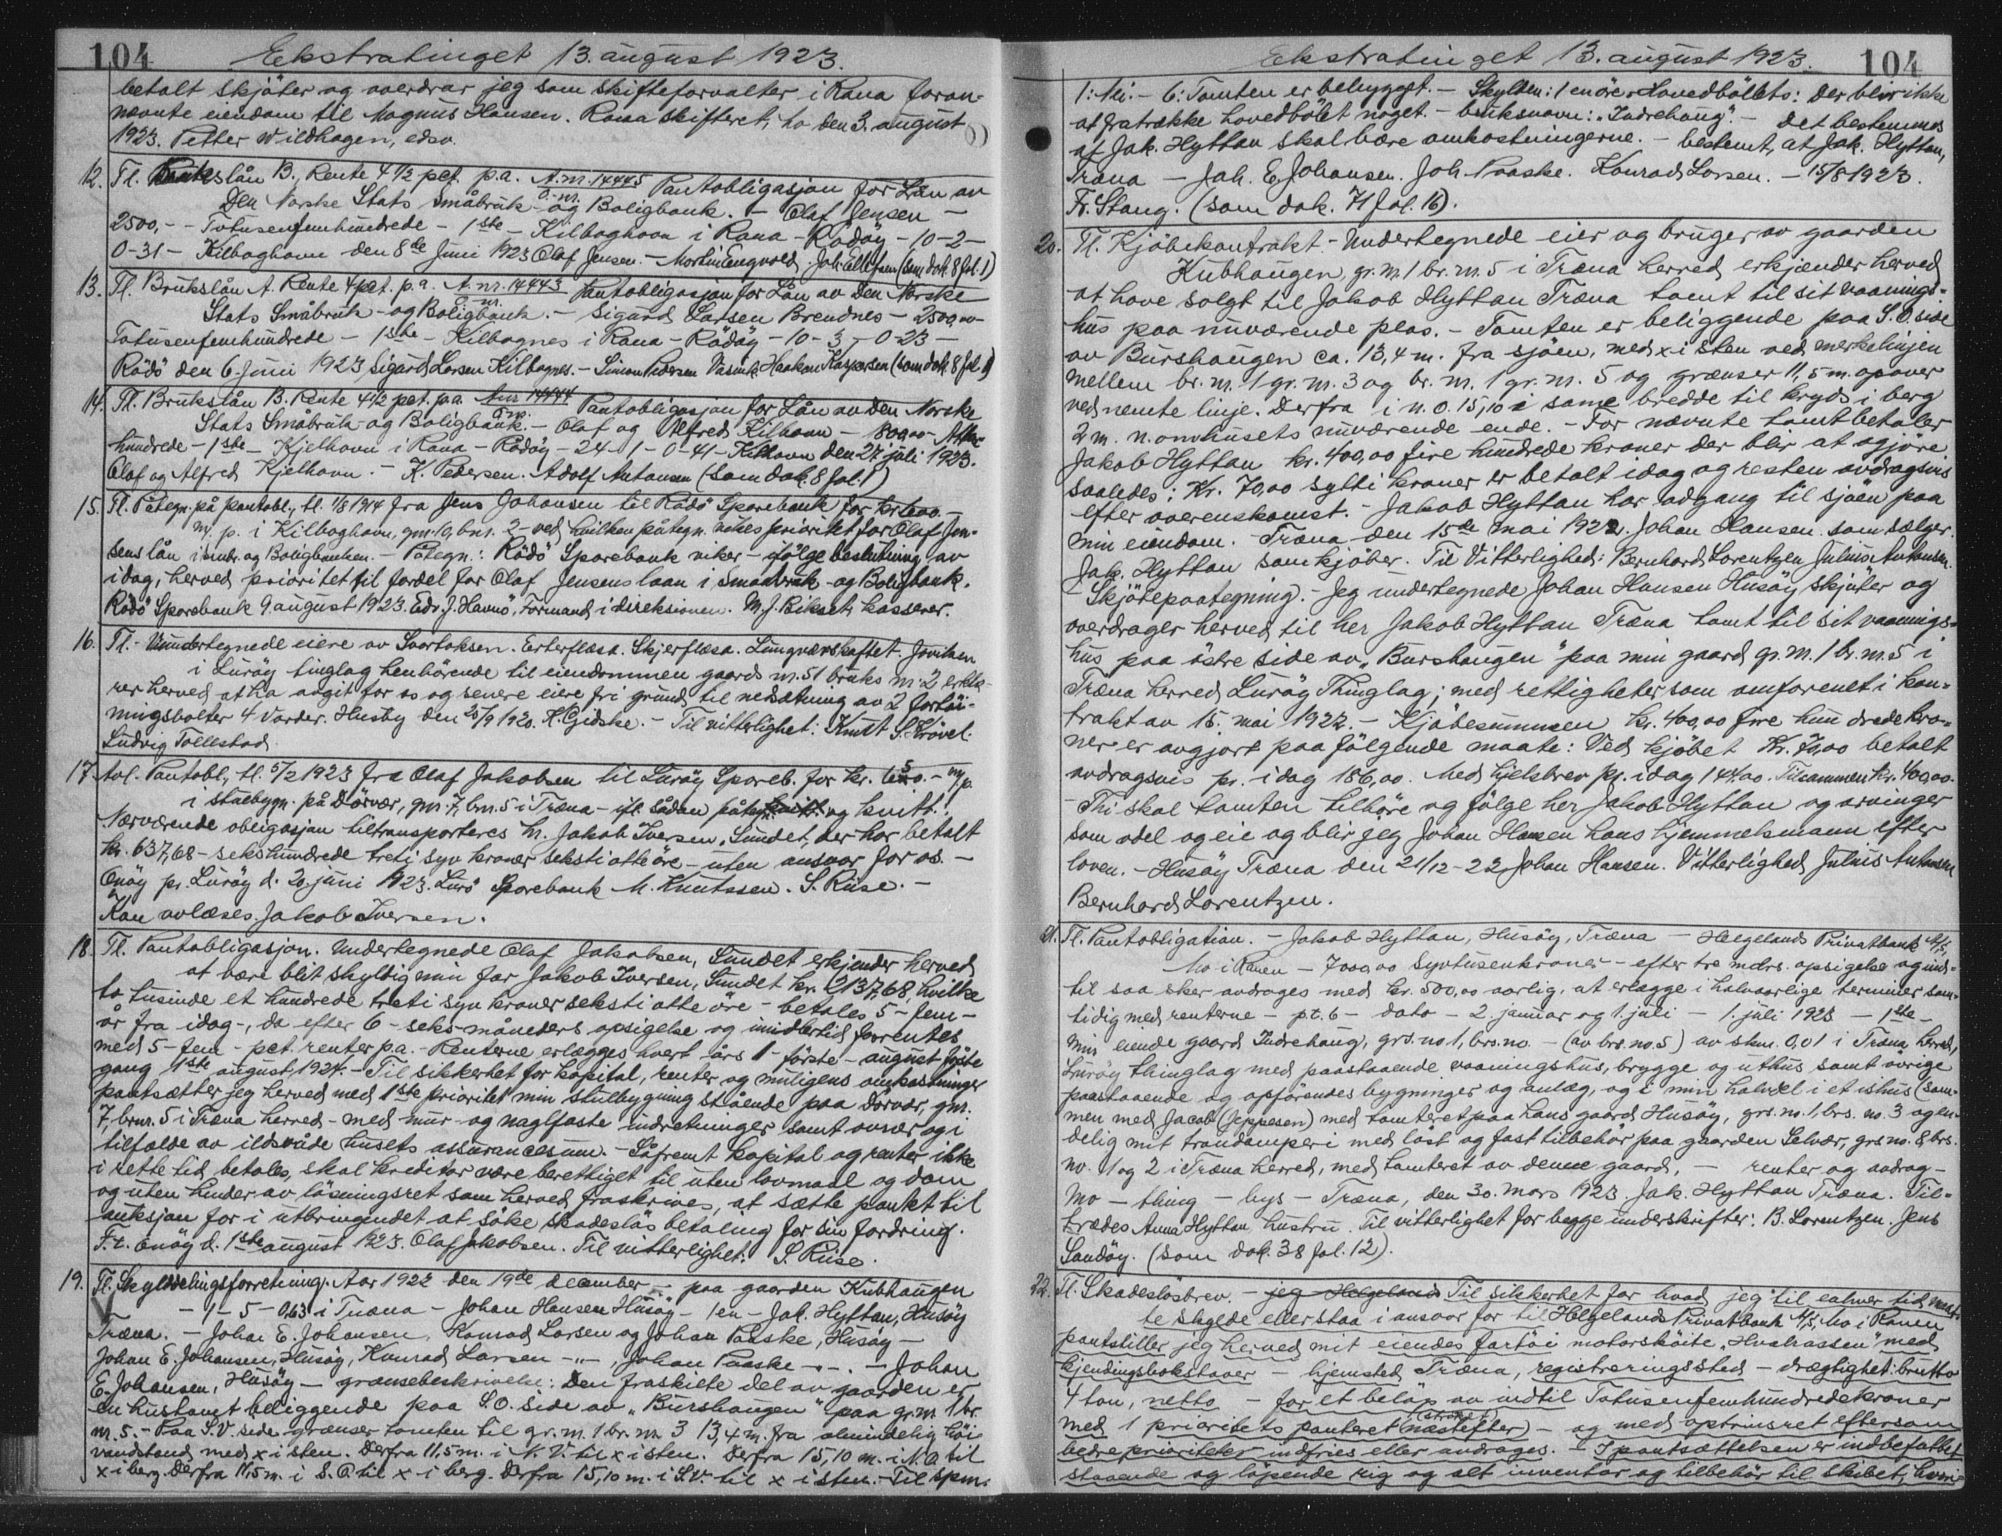 104
Ekstratinget 13. august 1923.
betalt skjøter og overdrar jeg som skifteforvalter i Rana foran-
nævnte eiendom til Magnus Hansen. Rana skifteret, Mo den 3. august
1923. Petter Wildhagen, edsv.
12. Tl. lån B., Rente 4 1/2 pct. p.a. A. nr. 14445 Pantobligasjon for Lån av
Den Norske Stats Småbruk- og Boligbank. – Olaf Jensen –
2500,- - Totusenfemhundrede – 1ste – Kilboghavn i Rana – Rødøy – 10-2-
0-31 – Kilboghavn den 8de Juni 1923 Olaf Jensen. – Joh. Ellefsen (som dok. 8 fol. 1)
13. Tl. Brukslån A. Rente 4 pct. p.a. A. nr. 14443 Pantobligasjon for Lån av Den Norske
Stats Småbruk- og Boligbank. – Sigurd Larsen Brendnes – 2500,00
Totusenfemhundrede – 1ste – Kilbognes i Rana – Rødøy – 10-3-0-23 –
Rødø den 6. Juni 1923 Sigurd Larsen Kilbognes. – Simon Pedersen Haakon Kaspersen (som dok. 8 fol. 1)
14. Tl. Brukslån B. Rente 4 1/2 pct. p.a. A. nr. 14444 Pantobligasjon for Lån av Den Norske
Stats Småbruk- og Boligbank. – Olaf og Alfred Kilhavn – 800,00 – Atte-
hundrede – 1ste – Kjelhavn i Rana – Rødøy – 24-1-0-41 – Kilhavn den 27 juli 1923.
Olaf og Alfred Kjelhavn. – K. Pedersen. Adolf Antonsen (som dok. 8 fol. 1)
15. Tl. Påtegn. på pantobl., tl. 1/8 1914 fra Jens Johansen til Rødø Sparebank for kr. 600.–
m. p. i Kilboghavn, gnr. 10, bnr. 2 – ved hvilken påtegn. vikes prioritet for Olaf Jen-
sens lån i småbr. og Boligbanken. – Påtegn.: Rødø Sparebank viker – ifølge beslutning av
idag, herved prioritet til fordel for Olaf Jensens laan i Smaabruk- og Boligbank.
Rødø Sparebank 9 august 1923. Edv. J. Havnø, Formand i direksionen. M. J. kasserer.
16. Tl. – Undertegnede eiere av Svartoksen. Erterflæsa. Skjerflæsa. Lungværskaftet.
i Lurøy tinglag henhørende til eiendommen gaards nr. 51 bruks nr. 2 erklæ-
rer herved at ha avgit for os og senere eiere fri grund til nedsætning av 2 fortøi-
ningsbolter 4 Varder. Husby den 20/9 1920. K. Gidske. – Til vitterlighet: Knut S. Krøvel.
Ludvig Tollestad.
17 Avl. Pantobl., tl. 5/2 1923 fra Olaf Jakobsen til Lurøy Spareb. for kr. – m. p.
i stuebygn. på Dørvær, gnr. 7, brn. 5 i Træna – ifl. sådan påtegn. og kvitt.:
Nærværende obligasjon tiltransporteres hr. Jakob Iversen, Sundet, der har betalt
kr. 637,68 – sekshundrede treti syv kroner seksti otte øre – uten ansvar for os. –
Onøy pr. Lurøy d. 20. juni 1923. Lurø Sparebank M. Knutssen. S. Riise. –
Kan avlæses. Jakob Iversen.
18. Tl. Pantobligasjon. Undertegnede Olaf Jakobsen, Sundet erkjender herved
at være blit skyldig min far Jakob Iversen, Sundet kr. 2137,68, hvilke
to tusinde et hundrede treti syv kroner seksti otte øre – betales 5 – fem –
år fra idag –, da efter 6 – seks – måneders opsigelse og imidlertid forrentes
med 5 – fem – pct. renter p.a. – Renterne erlægges hvert års 1 – første – august første
gang 1ste august 1924. – Til sikkerhet for kapital, renter og muligens omkostninger
pantsætter jeg herved med 1ste prioritet min stuebygning stående paa Dørvær, gnr.
7, bnr. 5 i Træna herred – med mur- og naglfaste indretninger samt ovner og i
tilfælde av ildsvåde husets assurancesum. – Såfremt kapital og renter ikke
i rette tid betales, skal kreditor være berettiget til uten lovmaal og dom
og uten hinder av løsningsret som herved fraskrives, at sætte pantet til
auksjon for i utbringendet at søke skadesløs betaling for sin fordring.
F.t. Onøy d. 1ste august 1923. Olaf Jakobsen. Til vitterlighet: S. Riise.
19. Tl. Skylddelingsforretning. Aar 1922 den 19de december – paa gaarden Kubhaugen
– 1-5-0,63 i Træna – Johan Hansen Husøy – 1 en – Jak. Hyttan, Husøy
Træna. – Johan E. Johansen, Konrad Larsen og Johan Paaske, Husøy –
Johan E. Johansen, Husøy, Konrad Larsen -"-, Johan Paaske -"- – Johan
E. Johansen, Husøy – grænsebeskrivelse: Den fraskilte del av gaarden er
en hustomt beliggende paa S.O. side av „Burshaugen" paa gr. nr. 1 br.
nr. 5. – Paa S.V. side grænser tomten til gr. nr. 1 br. nr. 3 13,4 m. fra almindelig høi
vandstand med x i sten. Derfra 11,5 m. i N.V. til x i sten. Derfra 15,10 m. i N.O. til
x i berg. Derfra 11,5 m. i S.O. til x i berg. Derfra 15,10 m. i S.V. til x i sten. – Til spm.
104
Ekstratinget 13. august 1923.
1: Nei. – 6: Tomten er bebygget. – Skylden: 1 en øre. Hovedbølets: Der blir ikke
at fratrække hovedbølet noget. – bruksnavn: „Indrehaug". – Det bestemmes
at Jak. Hyttan skal bære omkostningerne. – bestemt, at Jak. Hyttan,
Træna – Joh. E. Johansen. Joh. Paaske. Konrad Larsen. – 15/8 1923.
Fr. Stang. (som dok. 71 fol. 16).
20. Tl. Kjøbekontrakt – Undertegnede eier og bruger av gaarden
Kubhaugen, gr. nr. 1 br. nr. 5 i Træna herred, erkjænder herved
at have solgt til Jakob Hyttan Træna tomt til sit vaanings-
hus paa nuværende plas. – Tomten er beliggende paa S.O. side
av Burshaugen ca. 13,4 m. fra sjøen, med x i sten ved merkelinjen
mellem br. nr. 1 gr. nr. 3 og br. nr. 1 gr. nr. 5 og grænser 11,5 m. opover
ved nevnte linje. Derfra i n.o. 15,10 i same bredde til kryds i berg
2 m. n. om husets nuværende ende. – For nævnte tomt betaler
Jakob Hyttan kr. 400,00 fire hundrede kroner der blir at avgjøre
saaledes: Kr. 70,00 sytti kroner er betalt idag og resten avdragsvis
efter overenskomst. – Jakob Hyttan har adgang til sjøen paa
min eiendom. Træna den 15de mai 1922. Johan Hansen som sælger.
Jak. Hyttan som kjøber. Til Vitterlighed: Bernhard Lorentzen Julius Antonsen.
– Skjøtepaategning. – Jeg undertegnede Johan Hansen Husøy skjøter og
overdrager herved til her Jakob Hyttan Træna tomt til sit vaanings-
hus paa østre side av „Burshaugen" paa min gaard gr. nr. 1 br. nr. 5 i
Træna herred, Lurøy Thinglag; med rettigheter som omforenet i kon-
trakt av 15. mai 1922. – Kjøbesummen kr. 400,00 fire hundrede kro-
ner er avgjort paa følgende maate: Ved kjøbet kr. 70,00 betalt
avdragsvis pr. idag 186,00. Med gjelsbrev pr. idag 144,00. Tilsammen kr. 400,00.
– Thi skal tomten tilhøre og følge her Jakob Hyttan og arvinger
som odel og eie og blir jeg Johan Hansen hans hjemmelsmann efter
loven. – Husøy Træna den 21/12-22. Johan Hansen. Vitterlighed Julius Antonsen
Bernhard Lorentzen.
21. Tl. Pantobligation. – Jakob Hyttan, Husøy, Træna – Helgelands Privatbank A/S,
Mo i Ranen – 7000,00 syvtusenkroner – efter tre mdrs. opsigelse og ind-
til saa sker avdrages med kr. 500,00 aarlig, at erlægge i halvaarlige terminer sam-
tidig med renterne – pt. 6 – dato – 2. januar og 1. juli – 1. juli 1923 – 1ste –
min eiende gaard Indrehaug, grs. no 1, brs. no. – (av brs. no. 5) av skm. 0,01 i Træna herred,
Lurøy thinglag med paastaaende vaaningshus, brygge og uthus samt øvrige
paastaaende og opførendes bygninger og anlæg, og i min halvdel i et ishus (sam-
men med Jacob Jeppesen) med tomteret paa hans gaard Husøy, grs. no. 1, brs. no. 3 og en-
delig mit trandamperi med løst og fast tilbehør paa gaarden Selvær, grs. no. 8 brs.
no. 1 og 2 i Træna herred, med tomteret av denne gaard, – renter og avdrag –
Mo – thing – hus – Træna, den 30. Mars 1923. Jak. Hyttan Træna. Til-
trædes Anna Hyttan hustru. Til vitterlighet for begge underskrifter: B. Lorentzen. Jens
Sandøy. (som dok. 38 fol. 12).
22. Tl. Skadesløsbrev. – jeg Helgelands Til sikkerhet for hvad jeg til enhver tid maat-
te skylde eller staa i ansvar for til Helgelands Privatbank A/S, Mo i Ranen
pantstiller jeg herved mit eiendes fartøi motorskøite „Hvalrossen" med
kjendingsbokstaver – hjemsted Træna, registreringssted – drægtighet: brutto
4 ton, netto – for et beløp av indtil Totusenfemhundredekroner
med 1 prioritets panteret (næstefter) – og med optrinsret eftersom
bedre prioriteter indfries eller avdrages. – I pantsættelsen er indbefattet
staaende og løpende rig og alt inventar og tilbehør til skibet, hvori